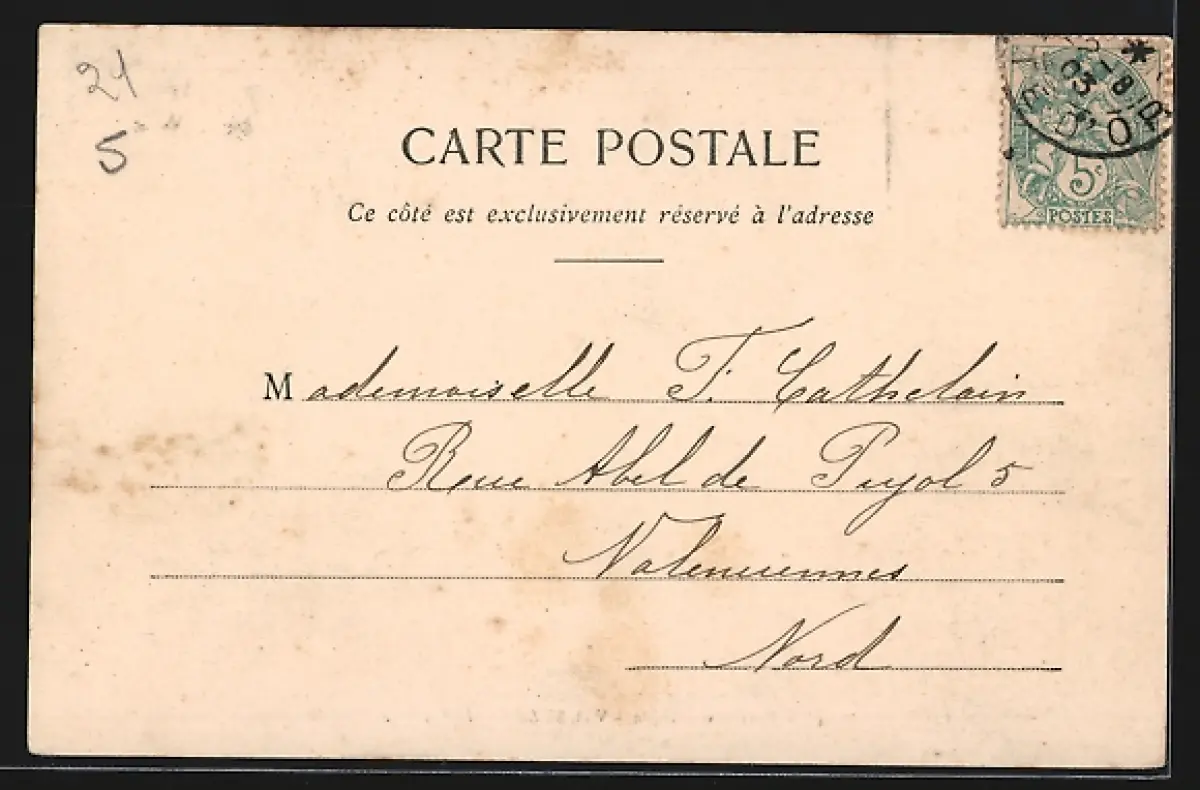 21
5
CARTE POSTALE
Ce côté est exclusivement réservé à l'adresse
5c
POSTES
Mademoiselle F. Cathelain
Rue Abel de Pujol 5
Valenciennes
Nord